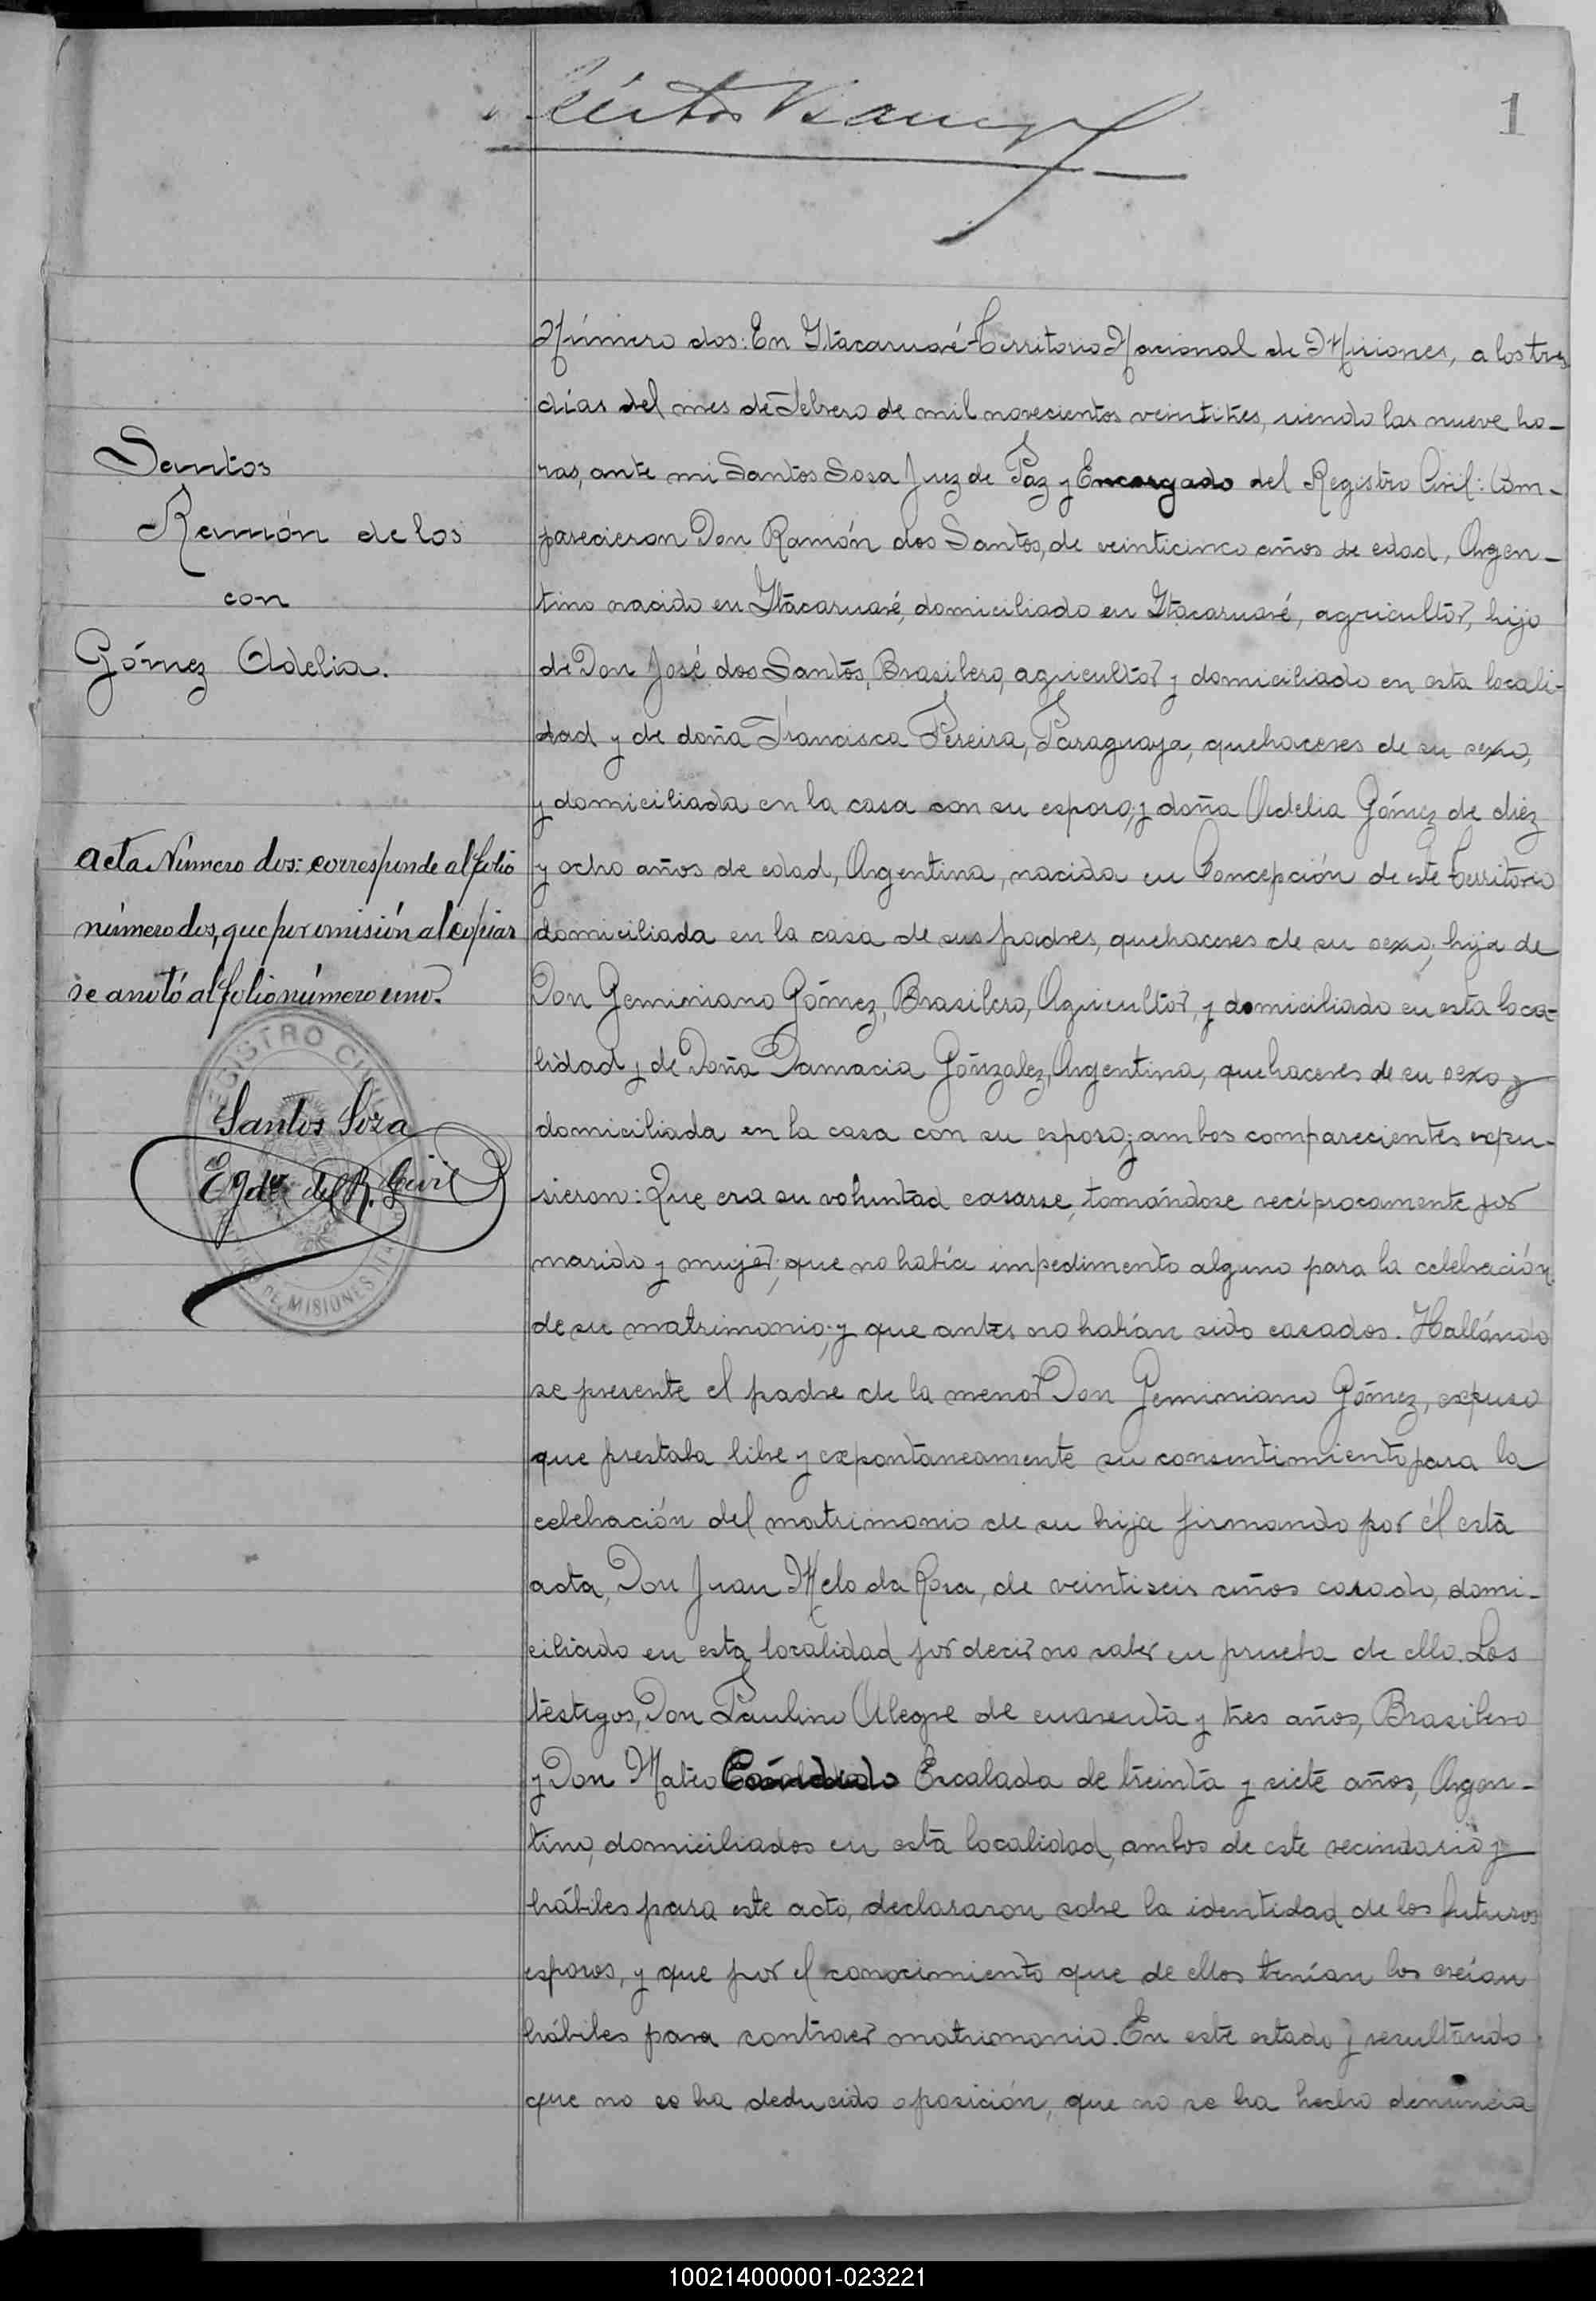 1
Número dos: En Itacaruaré Territorio Nacional de Misiones, a los tres
días del mes de Febrero de mil novecientos veintitres, siendo las nueve ho-
ras, ante mi Santos Sosa Juez de Paz y Encargado del Registro Civil: Com-
parecieron Don Ramón dos Santos, de veinticinco años de edad, Argen-
tino nacido en Itacaruaré, domiciliado en Itacaruaré, agricultor, hijo
de Don José dos Santos, Brasilero, agricultor y domiciliado en esta locali-
dad y de doña Francisca Pereira, Paraguaya, quehaceres de su sexo,
y domiciliada en la casa con su esposo; y doña Adelia Gómez de diéz
y ocho años de edad, Argentina, nacida en Concepción de este Territorio
domiciliada en la casa de sus padres, quehaceres de su sexo; hija de
Don Geminiano Gómez, Brasilero, Agricultor, y domiciliado en esta loca-
lidad y de Doña Damacia Gónzalez, Argentina, quehaceres de su sexo y
domiciliada en la casa con su esposo; y ambos comparecientes expu-
sieron: Que era su voluntad casarse, tomándose recíprocamente por
marido y mujer; que no había impedimento alguno para la celebración
de su matrimonio; y que antes no habían sido casados. Hallándo
se presente el padre de la menor Don Geminiano Gómez, expuso
que prestaba libre y expontaneamente su consentimiento para la
celebración del matrimonio de su hija firmando por él esta
acta, Don Juan Melo da Rosa, de veintiseis años casado, domi-
ciliado en esta localidad por decir no saber en prueba de ello. Los
testigos, Don Paulino Alegre de cuarenta y tres años, Brasilero
y Don Mateo Escalada de treinta y siete años, Argen-
tino, domiciliados en esta localidad, ambos de este vecindario y
hábiles para este acto, declararon sobre la identidad de los futuros
esposos, y que por el conocimiento que de ellos tenían los creían
hábiles para contraer matrimonio. En este estado y resultando
que no se ha deducido oposición, que no se ha hecho denuncia
Santos
Ramón de los
con
Gómez Adelia.
Acta Número dos: corresponde al folio
número dos, que por omisión al copiar
se anotó al folio número uno.
REGISTRO CIVIL
Santos Soza
Egdo. del R. Civil
DE MISIONES
100214000001-023221